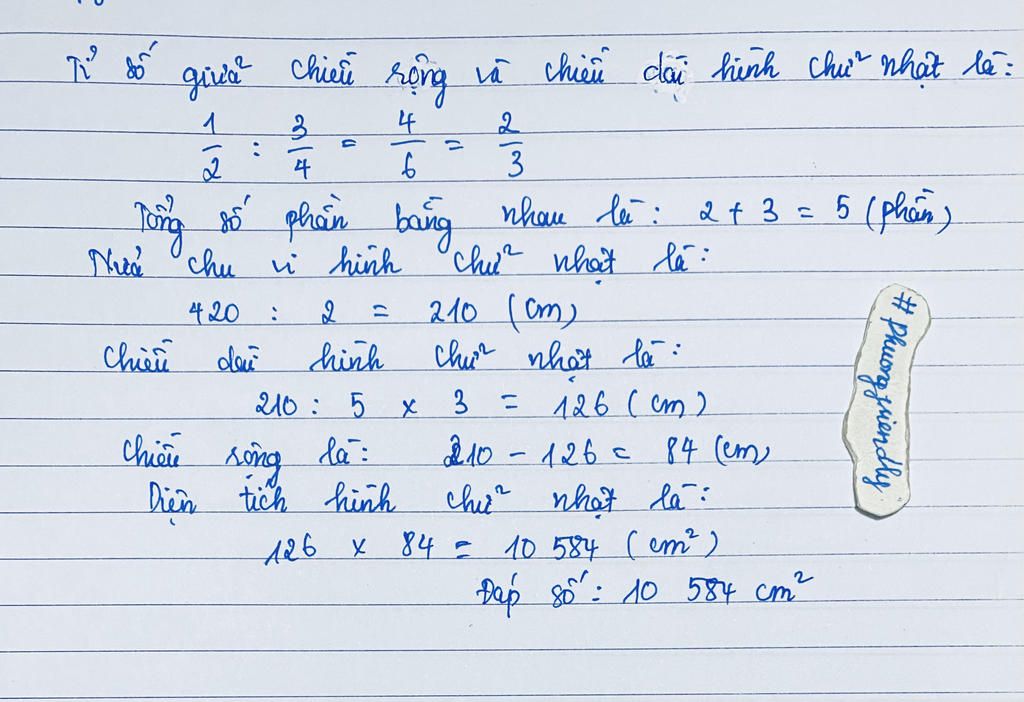 Tỉ số giữa chiều rộng và chiều dài hình chữ nhật là:
1/2 : 3/4 = 4/6 = 2/3
Tổng số phần bằng nhau là: 2 + 3 = 5 (phần)
Nửa chu vi hình chữ nhật là:
420 : 2 = 210 (cm)
Chiều dài hình chữ nhật là:
210 : 5 x 3 = 126 (cm)
Chiều rộng là: 210 - 126 = 84 (cm)
Diện tích hình chữ nhật là:
126 x 84 = 10 584 (cm²)
Đáp số: 10 584 cm²
#phuongfriendly